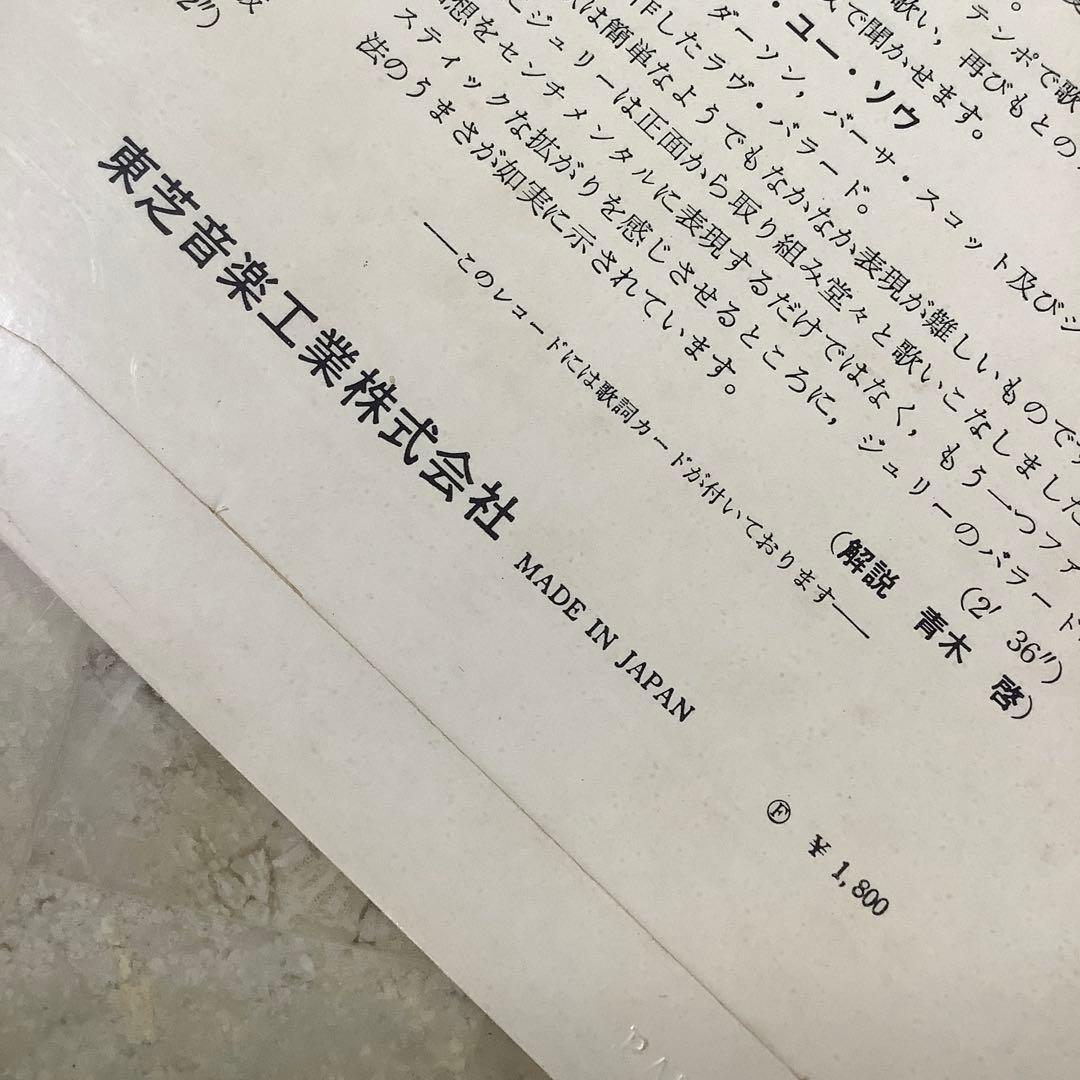 テンポで歌
歌い，再びもとの
で聞かせます。
・ユー・ソウ
ダーソン，バーサ・スコット及びジ
作したラヴ・バラード。
は簡単なようでもなかなか表現が難しいものです
とジュリーは正面から取り組み堂々と歌いこなしました
想をセンチメンタルに表現するだけではなく，もう一つファ
スティックな拡がりを感じさせるところに，ジュリーのバラード
法のうまさが如実に示されています。
(2′ 36″)
(解説 青木 啓)
2″)
——このレコードには歌詞カードが付いております——
東芝音楽工業株式会社 MADE IN JAPAN
Ⓕ ¥ 1,800